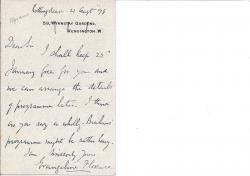 Nottingham 21 Sept '98
59, Wynnstay Gardens,
Kensington. W.
Dear Sir
I shall keep 25th
January free for you and
we can arrange the details
of programme later. I think
as you say a wholly Brahms
programme might be rather heavy.
Yours sincerely
Evangeline Florence